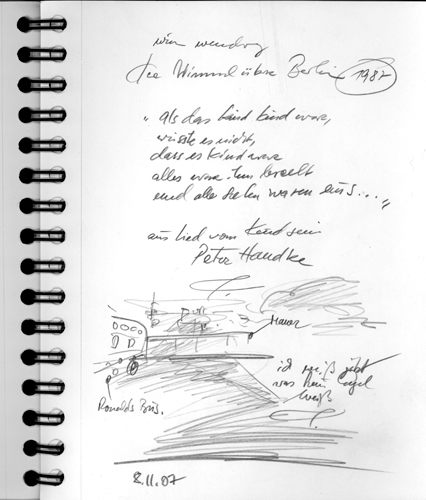 wim wenders
Der Himmel über Berlin 1987
"als das Kind Kind war,
wusste es nicht,
dass es Kind war
alles war ihm beseelt
und alle Seelen waren eins...„
aus Lied vom Kindsein
Peter Handke
Mauer
ich weiß jetzt
was kein Engel
weiß
Ronalds Bus.
8.11.07